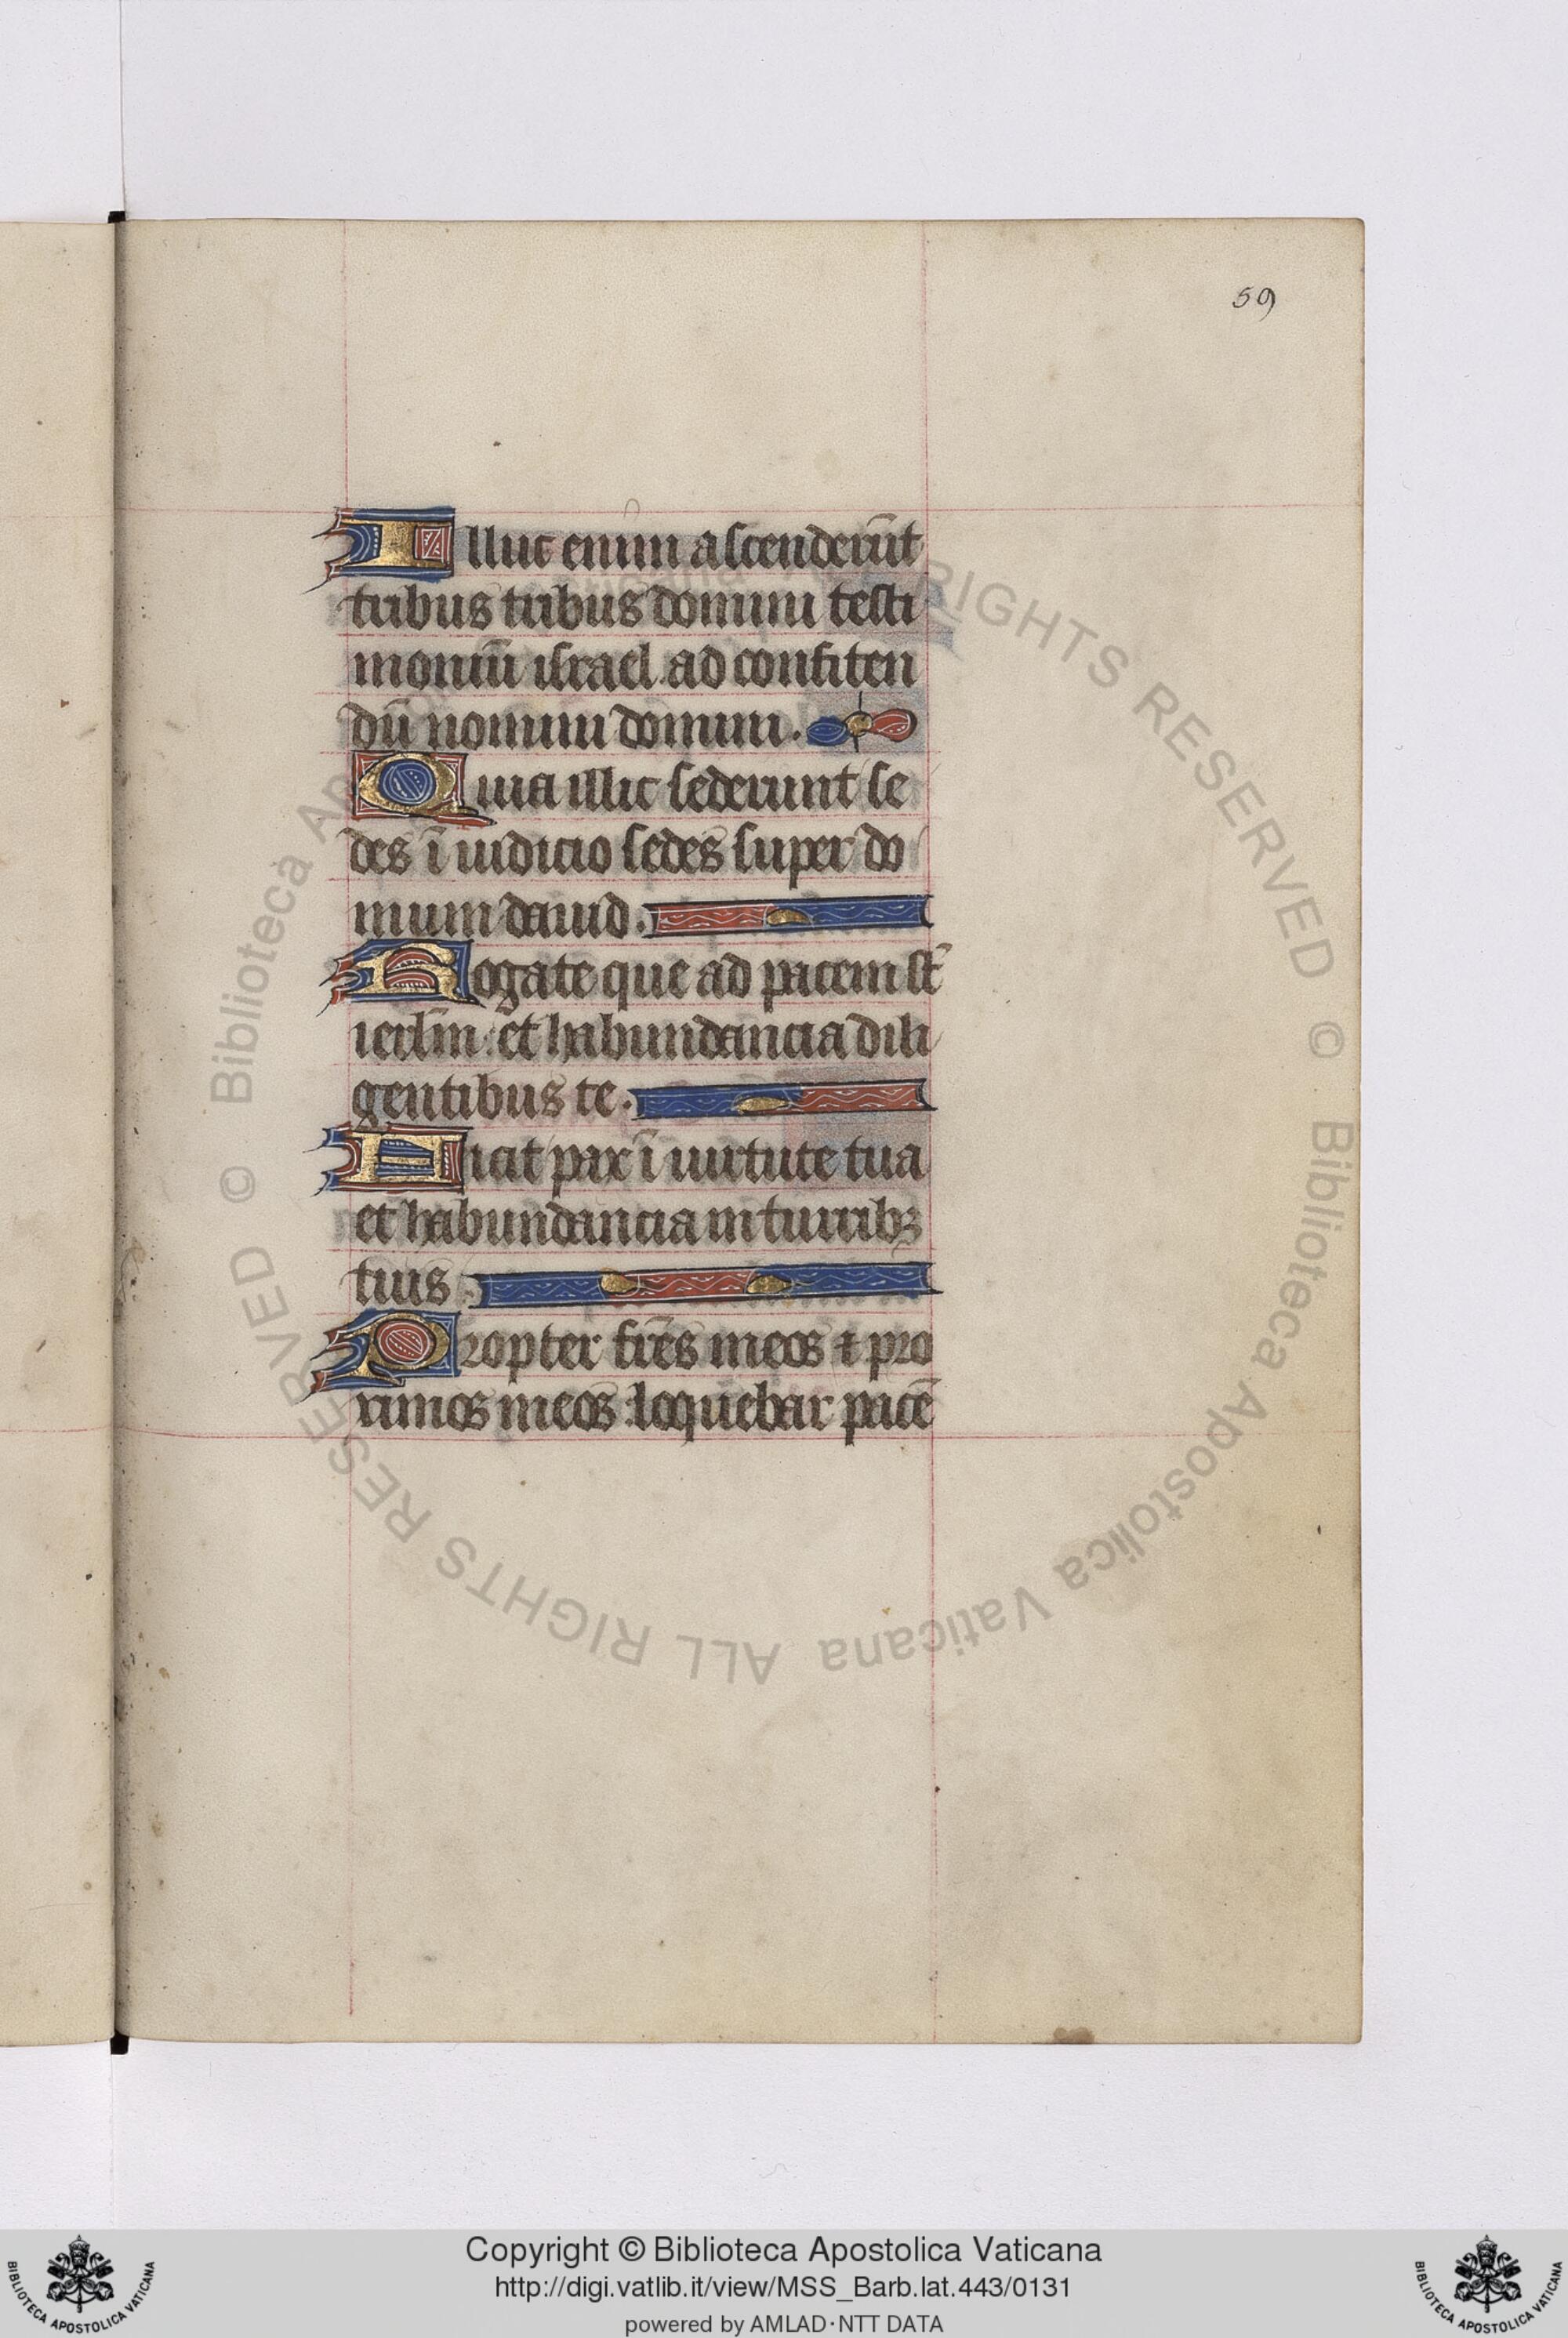 59
Illuc enim ascenderūt
tribus tribus domini testi
moniū israel ad confiten
dū nomini domini.
Quia illic sederunt se
des ī iudicio sedes super do
mum dauid.
Rogate que ad pacem st̄
ierl̄m: et habundancia dili
gentibus te.
Fiat pax ī uirtute tua
et habundancia in turribꝫ
tuis.
Propter fr̄es meos ⁊ pro
ximos meos loquebar pacē
© Biblioteca Apostolica Vaticana ALL RIGHTS RESERVED © Biblioteca Apostolica Vaticana ALL RIGHTS RESERVED
Copyright © Biblioteca Apostolica Vaticana
http://digi.vatlib.it/view/MSS_Barb.lat.443/0131
powered by AMLAD·NTT DATA
BIBLIOTECA APOSTOLICA VATICANA
BIBLIOTECA APOSTOLICA VATICANA